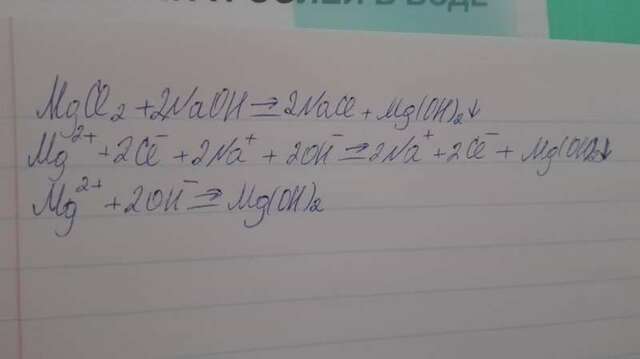 ЛЕЙ В ВОДЕ
MgCl₂ + 2NaOH ⇌ 2NaCl + Mg(OH)₂↓
Mg²⁺ + 2Cl⁻ + 2Na⁺ + 2OH⁻ ⇌ 2Na⁺ + 2Cl⁻ + Mg(OH)₂↓
Mg²⁺ + 2OH⁻ ⇌ Mg(OH)₂